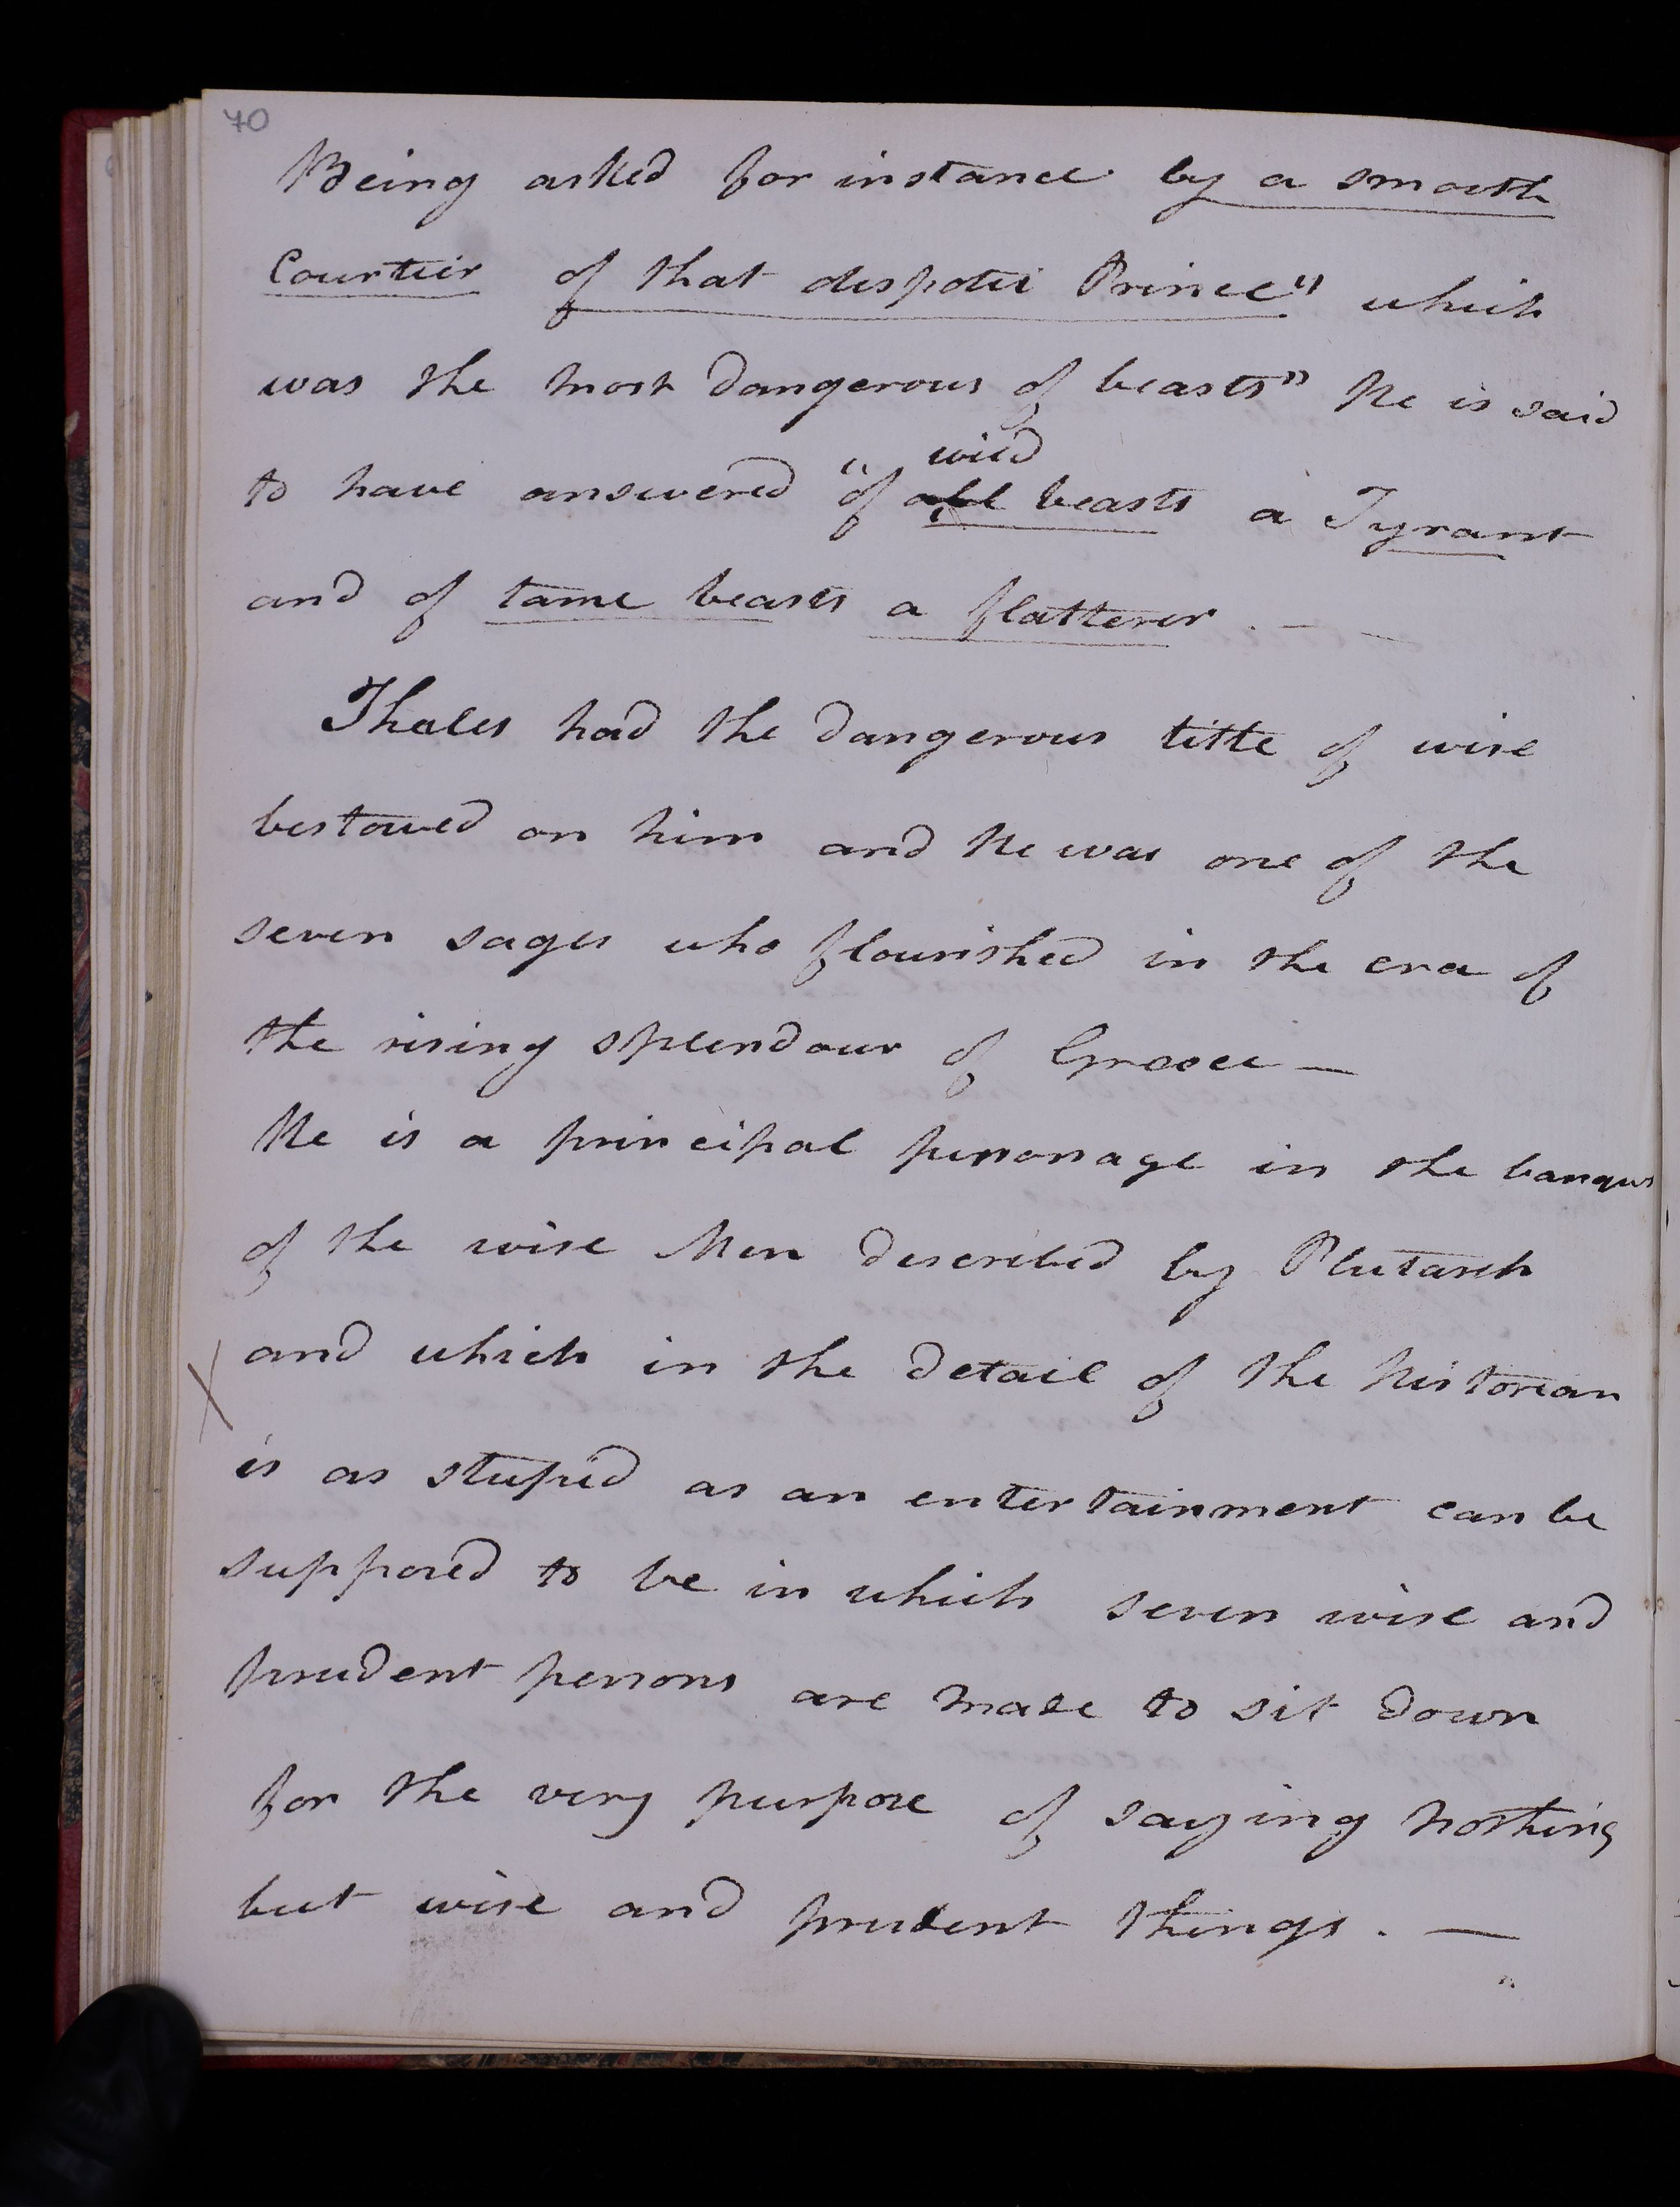 70
Being asked for instance by a smooth
Courtier of that despotic Prince" which
was the most dangerous of beasts" He is said
wild
to have answered "of all beasts a Tyrant
and of tame beasts a flatterer. — —
Thales had the dangerous title of wise
bestowed on him and he was one of the
seven sages who flourished in the era of
the rising splendour of Greece —
He is a principal personage in the banqu
of the wise Men described by Plutarch
X and which in the detail of the historian
is as stupid as an entertainment can be
supposed to be in which seven wise and
prudent persons are made to sit down
for the very purpose of saying nothing
but wise and prudent things. —